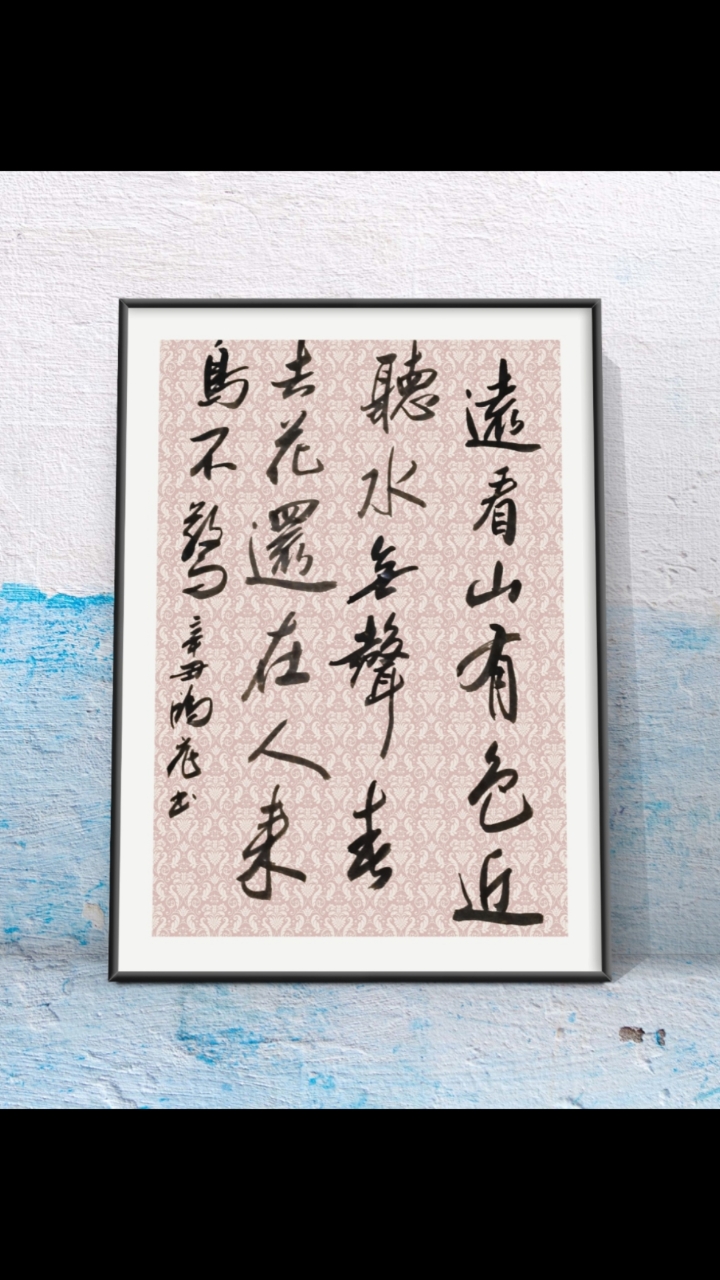 遠看山有色近
聽水無聲春
去花還在人来
鳥不驚
辛丑 書